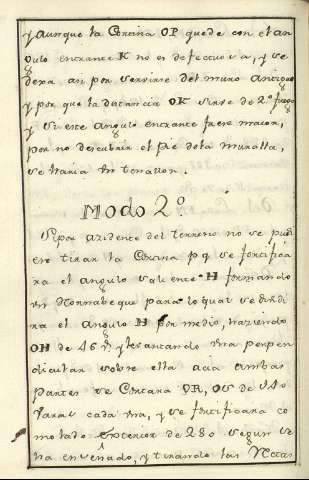 y aunque la Cortina OP quede con el an
gulo entrante K no es defectuosa, y se
dexa asi por servirse del muro Antiguo
y por que la distancia OK sirve de 2º fuego
y si este angulo entrante fuese maior,
por no descubrir el pie de la muralla,
se haria un tenallon.
Modo 2º
Si por acidente del terreno no se pudi
ere tirar la Cortina pq se fortifica
ra el angulo saliente H formando
un Hornabeque para lo qual se dividi
ra el angulo H por medio, haziendo
OH de 46 vs y levantando una perpen
dicular sobre ella acia ambas
partes se cortara OR, OS de 140
varas cada una, y se fortificara co
mo lado exterior de 280 segun se
ha enseñado, y tirando las Rectas